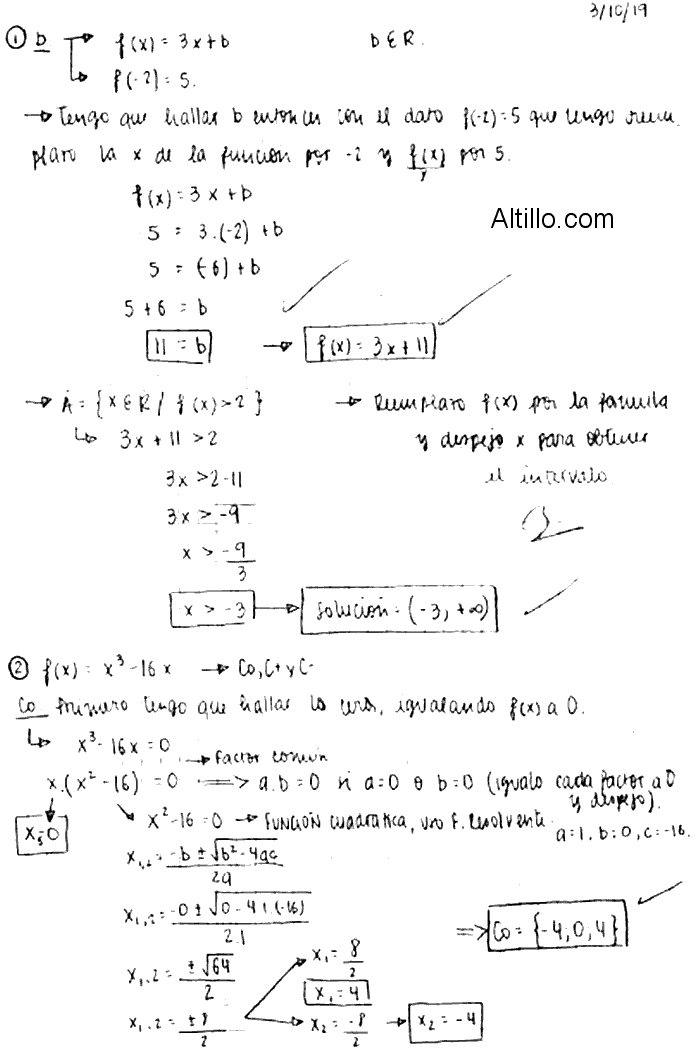 3/10/19
① b → f(x) = 3x + b b ∈ R.
↳ f(-2) = 5.
→ Tengo que hallar b entonces con el dato f(-2) = 5 que tengo reem
plazo la x de la función por -2 y f(x) por 5.
f(x) = 3x + b
Altillo.com
5 = 3.(-2) + b
5 = (-6) + b
5 + 6 = b
11 = b → f(x) = 3x + 11
→ A = {x ∈ R / f(x) > 2} → Reemplazo f(x) por la fórmula
↳ 3x + 11 > 2 y despejo x para obtener
3x > 2 - 11 el intervalo
3x > -9
x > -9/3
x > -3 → Solución = (-3, +∞)
② f(x) = x³ - 16x → Co, C+ y C-
Co Primero tengo que hallar los ceros, igualando f(x) a 0.
↳ x³ - 16x = 0
→ Factor común
x.(x² - 16) = 0 ⟹ a.b = 0 si a = 0 o b = 0 (igualo cada factor a 0
y despejo).
x₃ 0 ↘ x² - 16 = 0 → Función cuadrática, uso F. Resolvente.
a = 1, b = 0, c = -16.
x₁,₂ = -b ± √b² - 4ac / 2a
x₁,₂ = -0 ± √0 - 4.1.(-16) / 2.1
⟹ Co = {-4, 0, 4}
x₁,₂ = ± √64 / 2 x₁ = 8/2
x₁ = 4
x₁,₂ = ± 8 / 2 x₂ = -8/2 → x₂ = -4